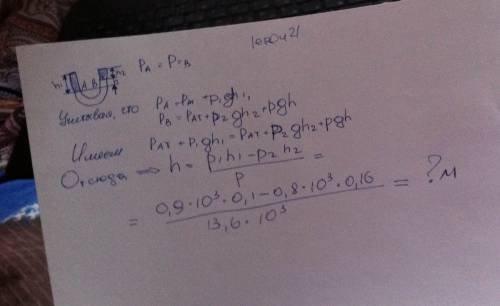 h₁ A B h₂ h P_A = P_B
Учитывая, что P_A = P_ат + ρ₁gh₁,
P_B = P_ат + ρ₂gh₂ + ρgh
Имеем P_ат + ρ₁gh₁ = P_ат + ρ₂gh₂ + ρgh
Отсюда ⟹ h = (ρ₁h₁ − ρ₂h₂) / ρ =
= (0,9·10³·0,1 − 0,8·10³·0,16) / (13,6·10³) = ? м